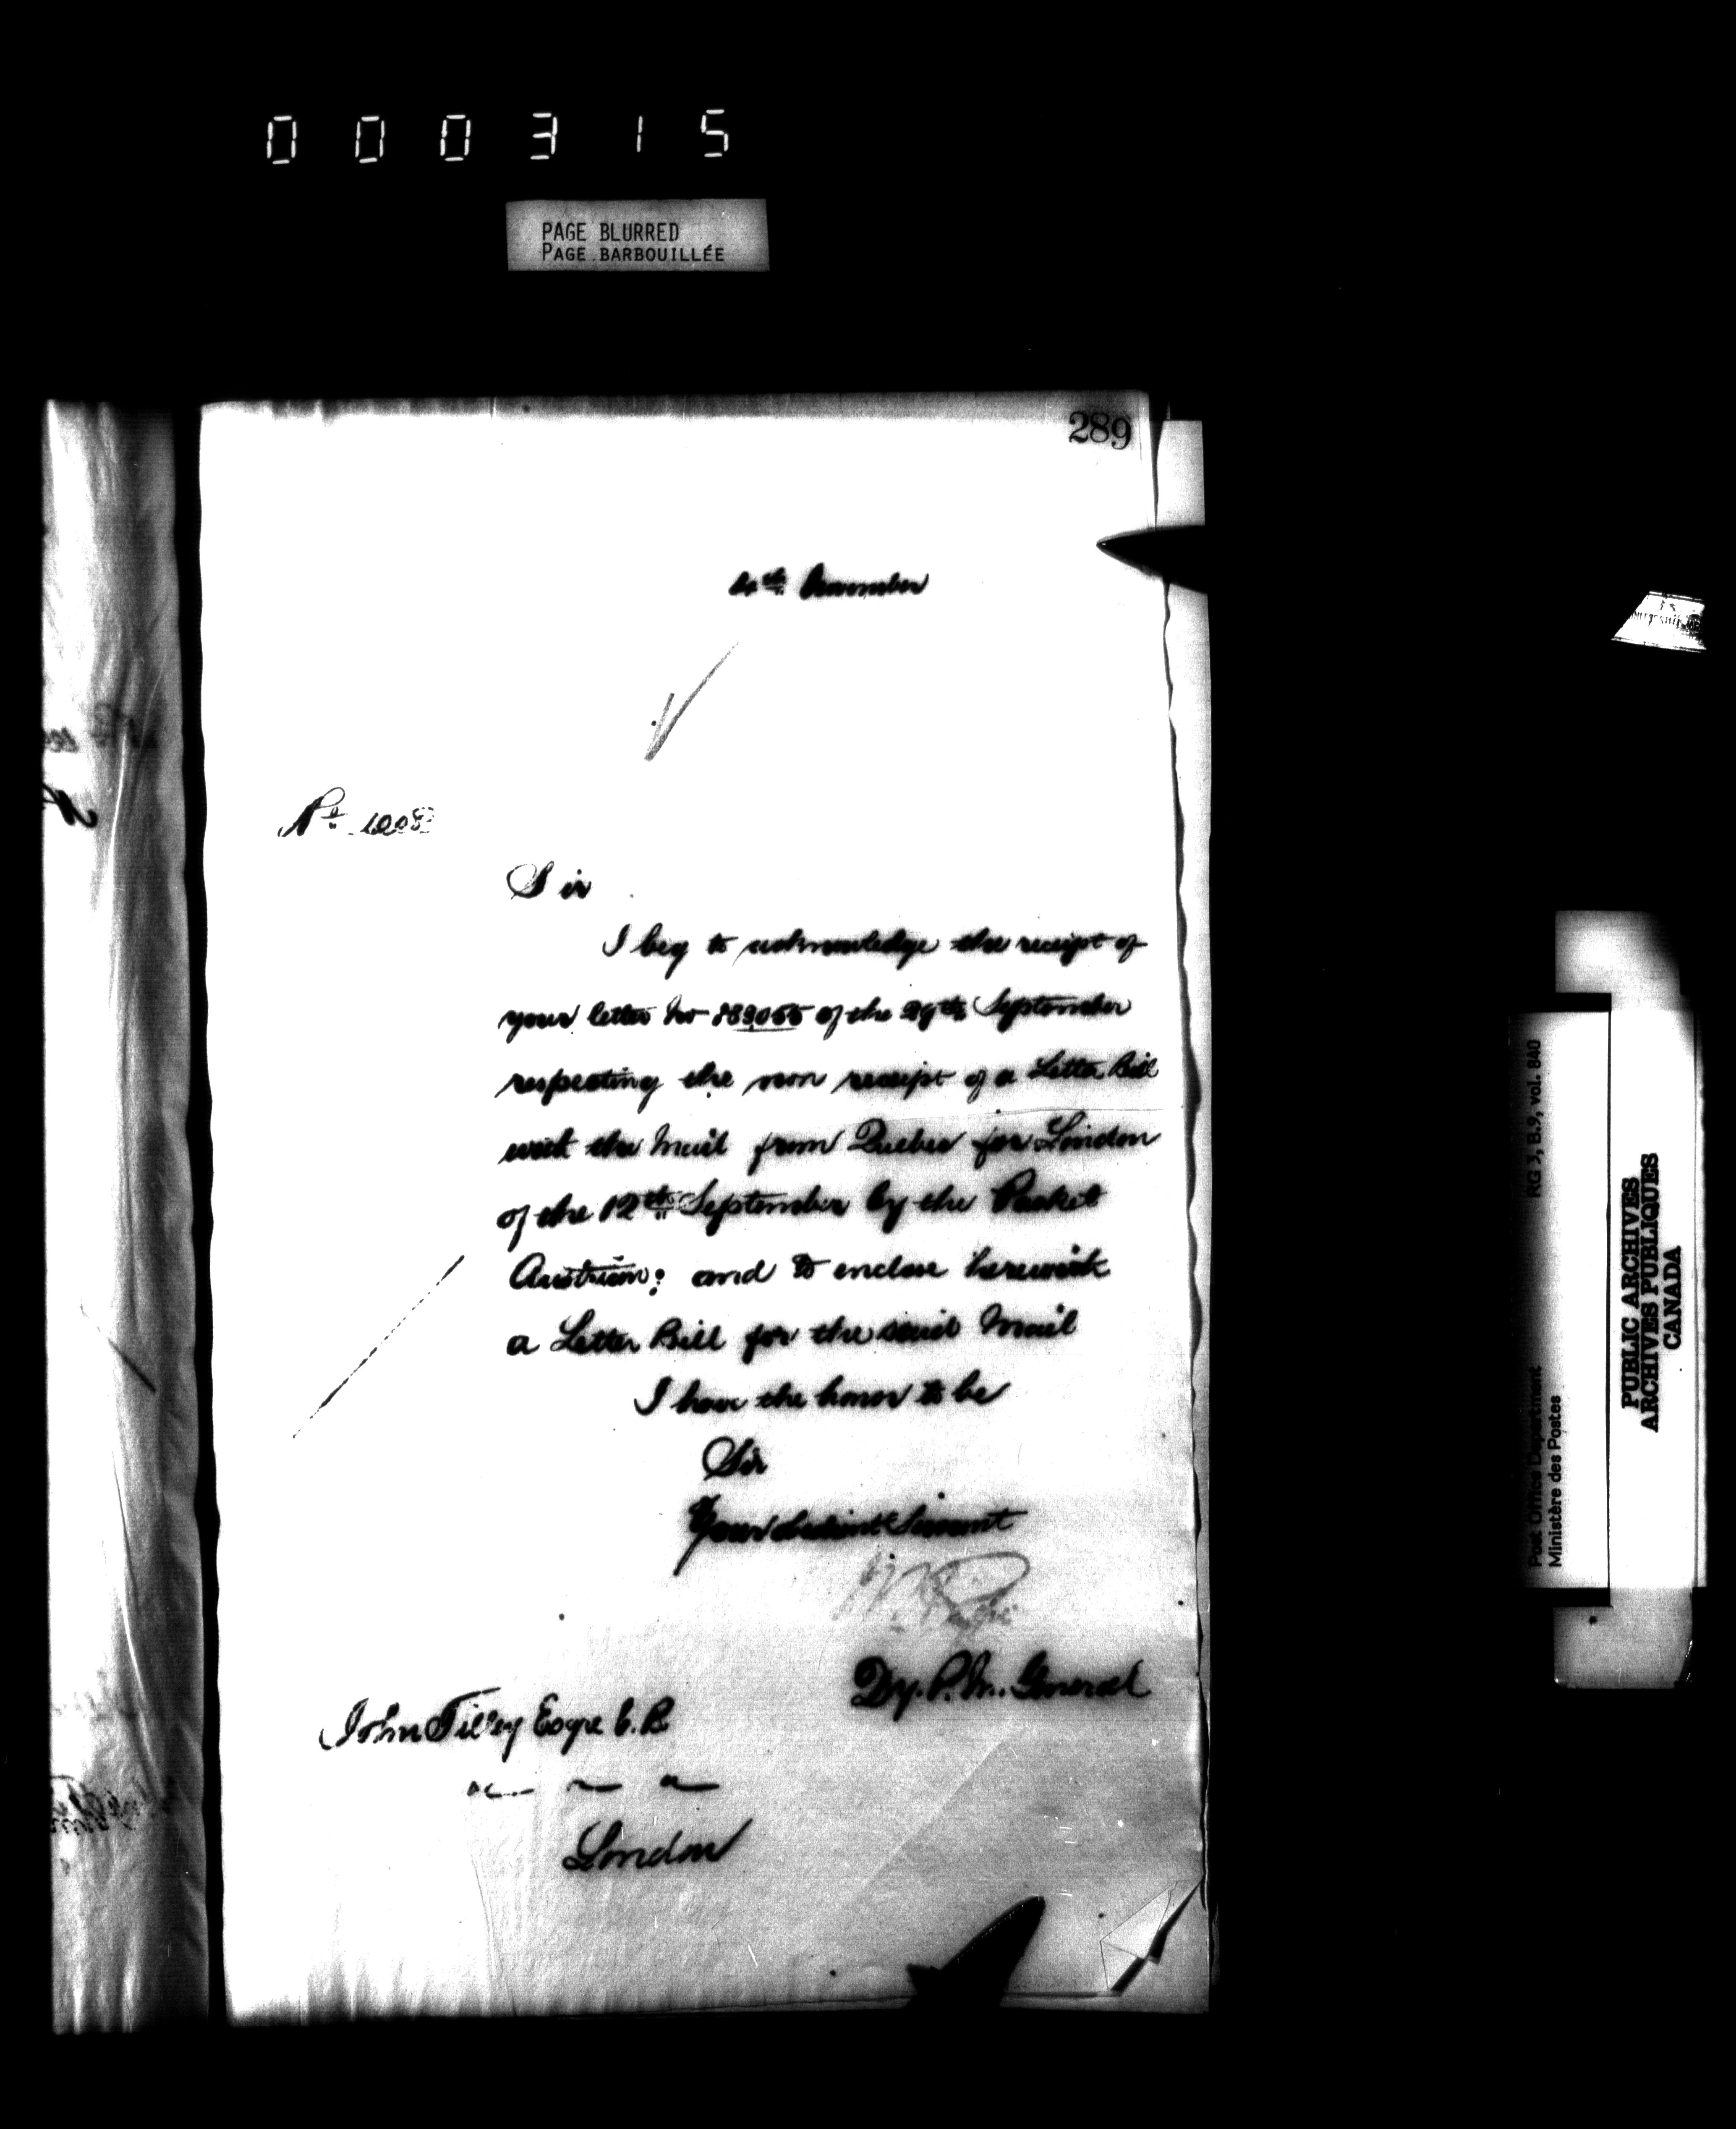 000315
PAGE BLURRED
PAGE BARBOUILLÉE
289
4th November
Sir
I beg to acknowledge the receipt of
your letter No 889055 of the 29th September
respecting the non receipt of a Letter Bill
with the Mail from Quebec for London
of the 12th September by the Packet
Austrian: and to enclose herewith
a Letter Bill for the said Mail
I have the honor to be
Sir
Your obedient Servant
Dy. P. M. General
John Tilley Esqre C. B.
London
RG 3, B.9, vol. 840
Post Office Department
Ministère des Postes
PUBLIC ARCHIVES
ARCHIVES PUBLIQUES
CANADA